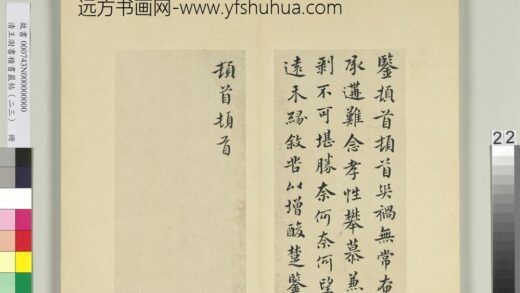 远方书画网-www.yfshuhua.com
鑒頓首頓首災禍無常奄
承遘難念孝性攀慕兼
剝不可堪勝奈何奈何望
遠未緣敘苦以增酸楚鑒
頓首頓首
故書 000743N00000000
清王澍書積書巖帖(二三) 冊
22